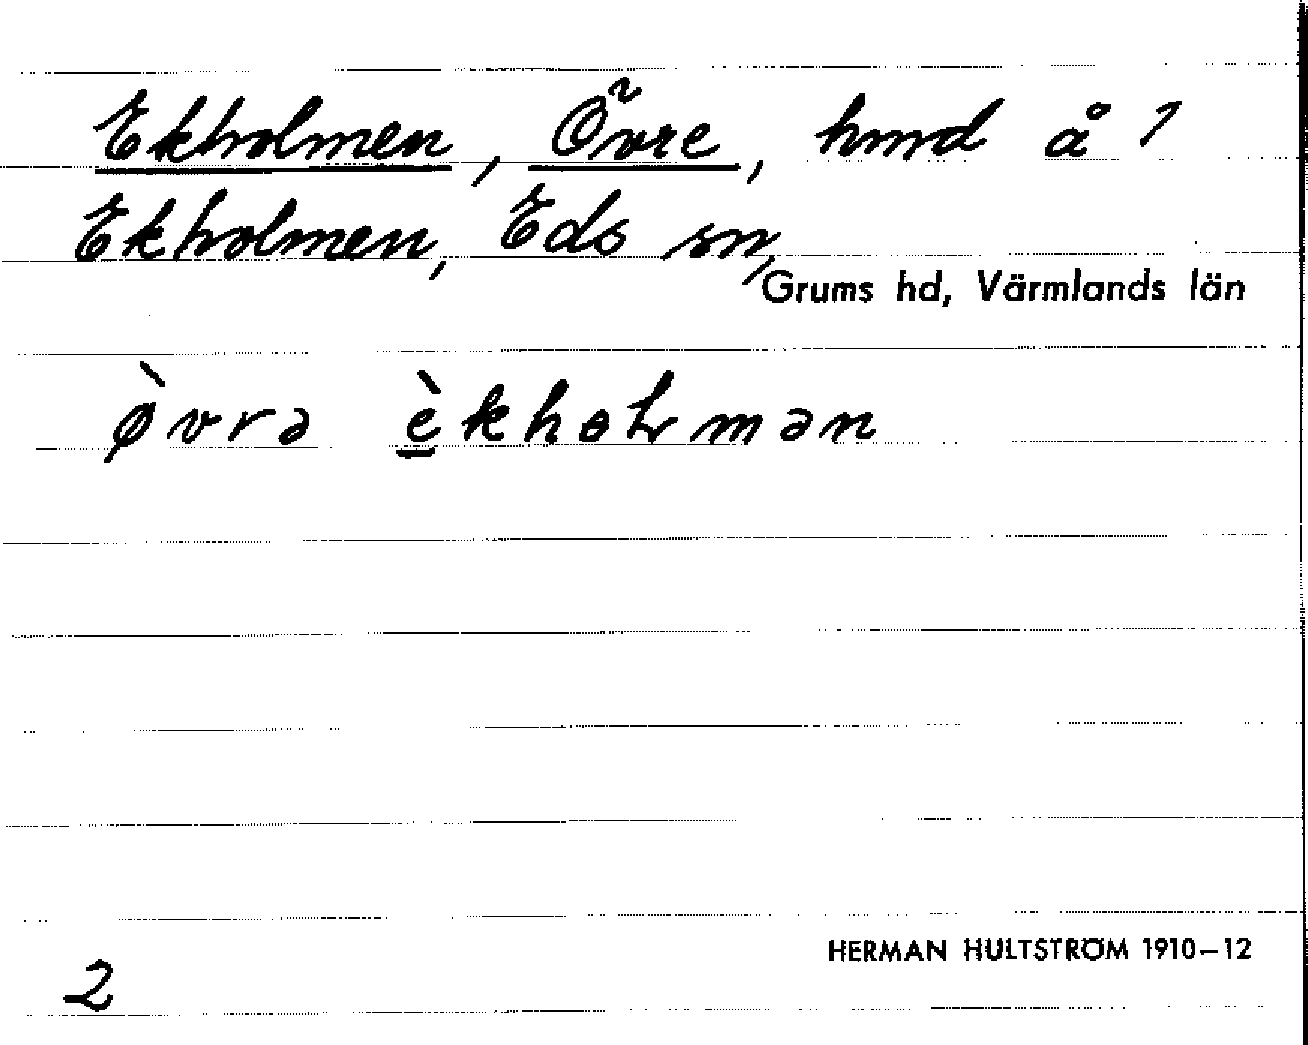 Ekholmen, Övre, hmd å 1
Ekholmen, Eds sn,
Grums hd, Värmlands län
ø̀vrə è̱khoɫmən
HERMAN HULTSTRÖM 1910–12
2